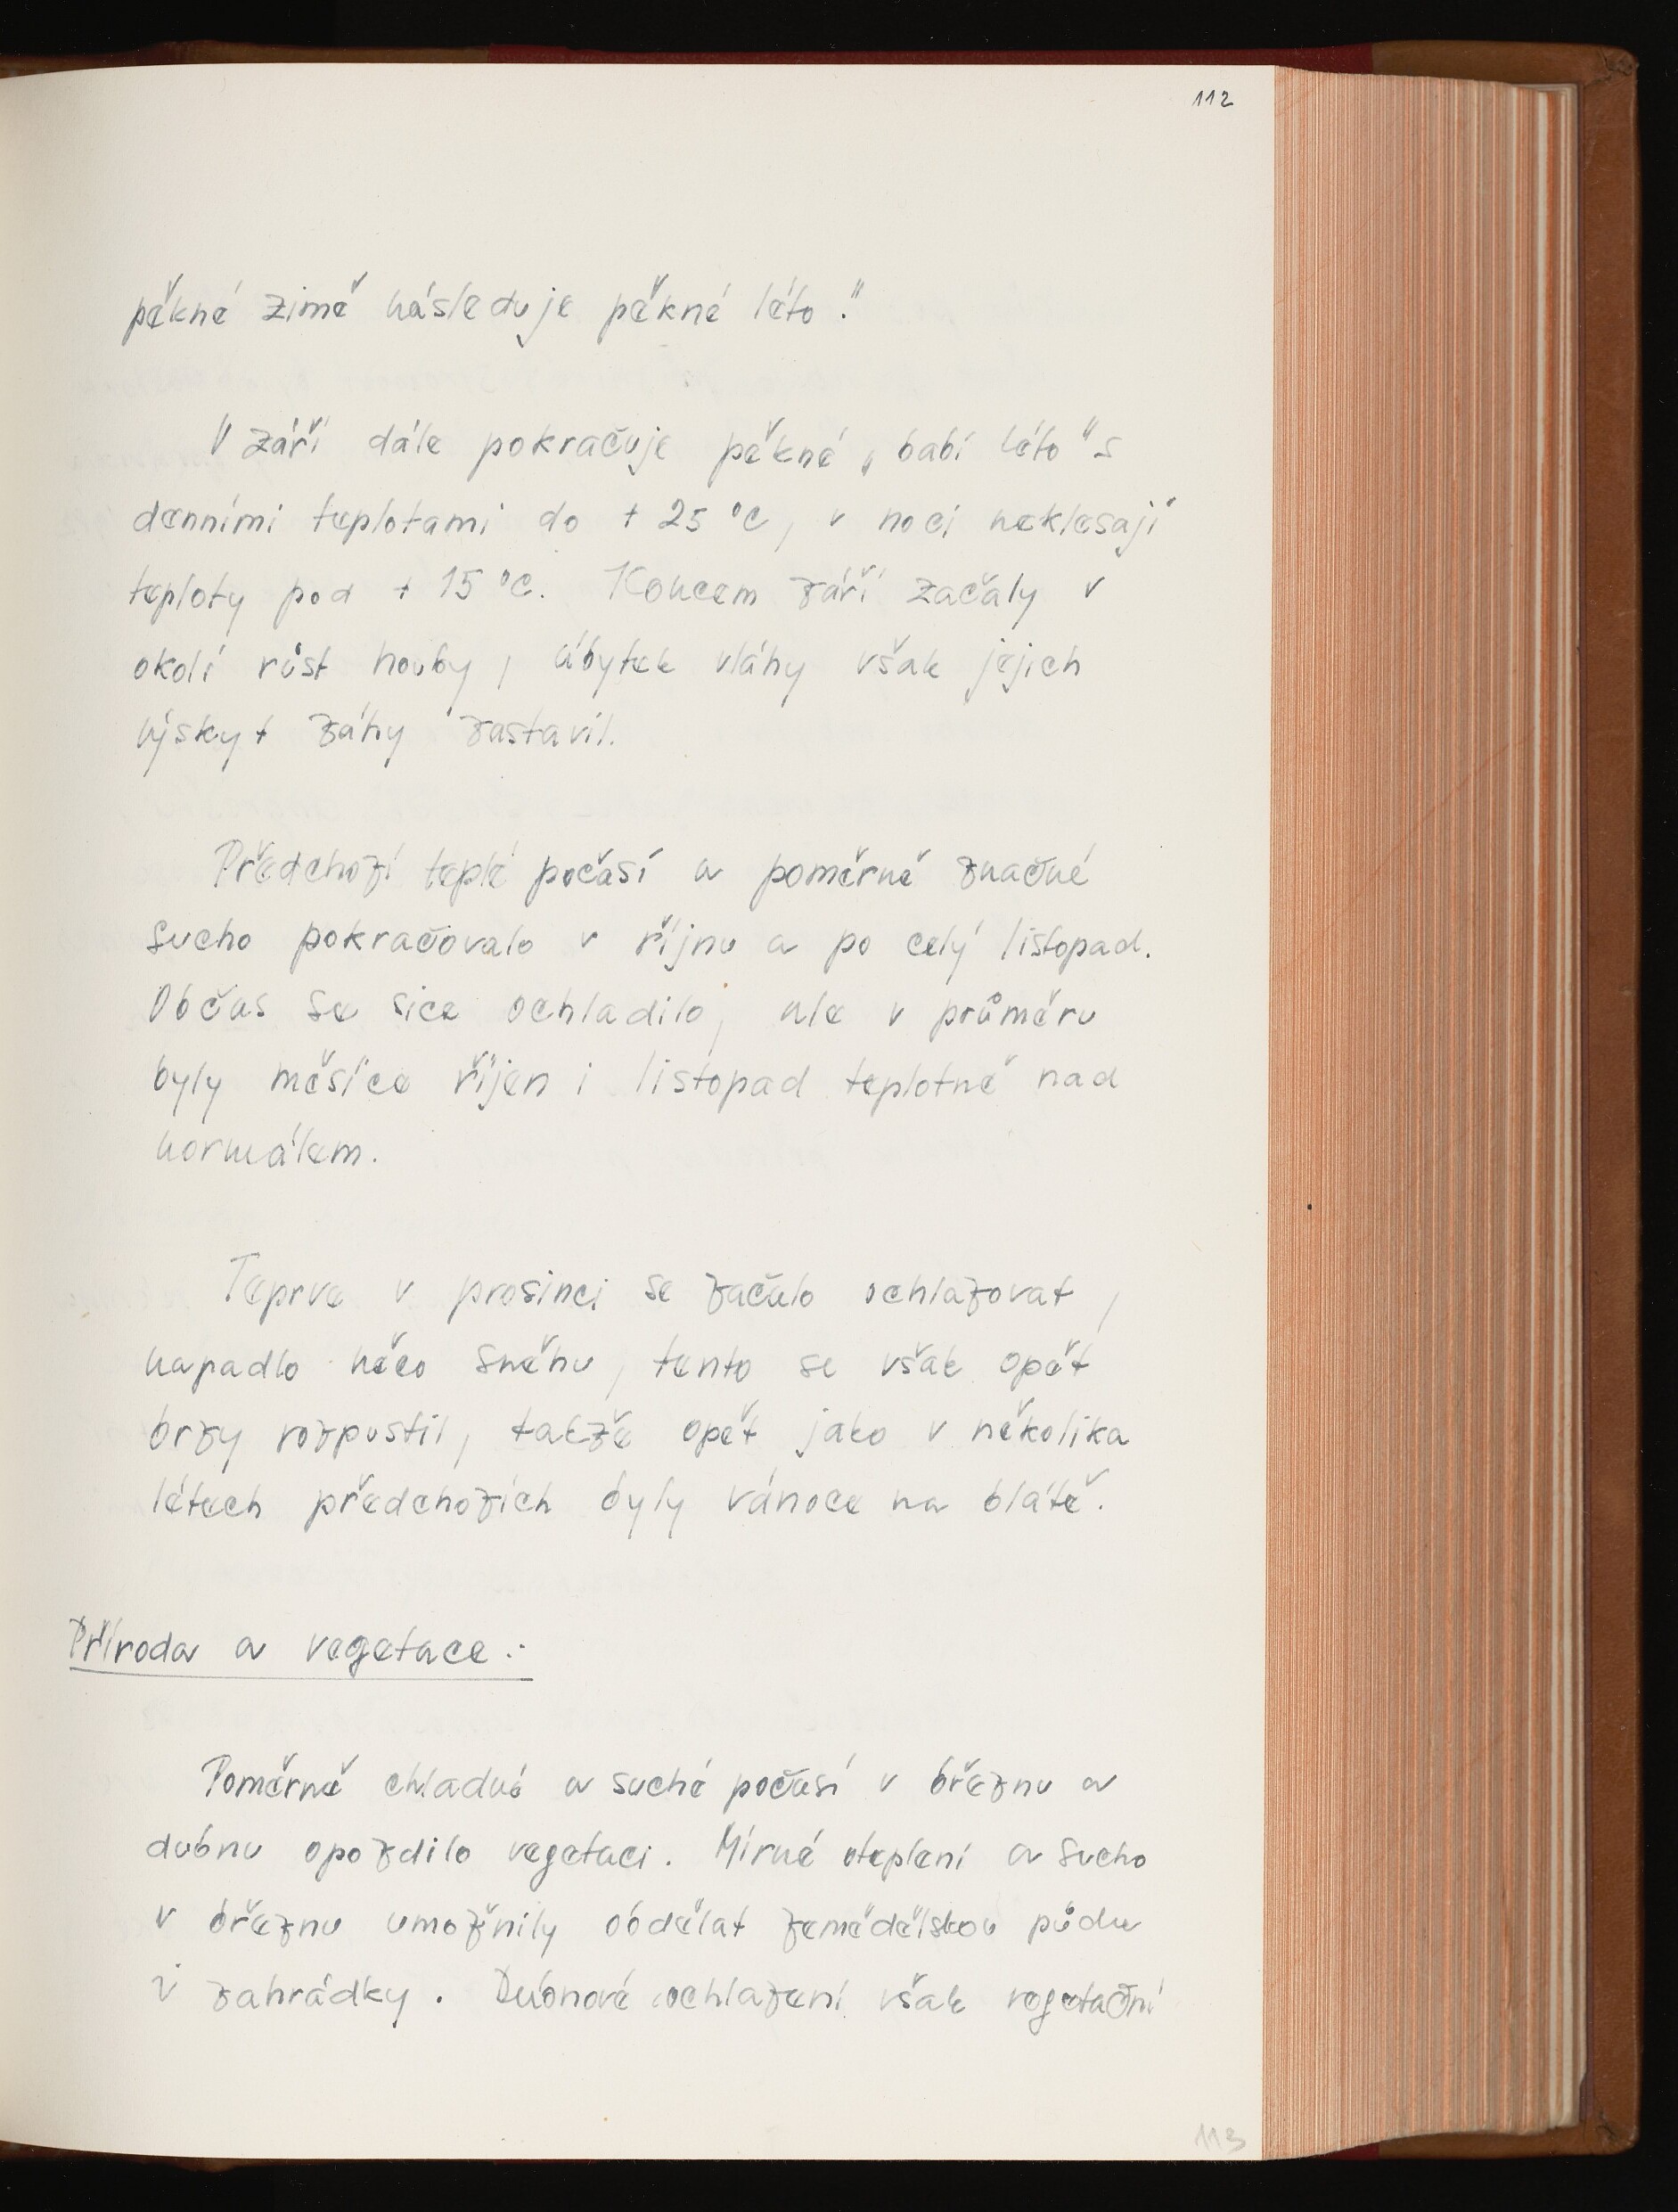 112
pěkné zimě následuje pěkné léto."
V září dále pokračuje pěkné „babí léto" s
denními teplotami do + 25 °C, v noci neklesají
teploty pod + 15 °C. Koncem září začaly v
okolí růst houby, úbytek vláhy však jejich
výskyt záhy zastavil.
Předchozí teplé počasí a poměrně značné
sucho pokračovalo v říjnu a po celý listopad.
Občas se sice ochladilo, ale v průměru
byly měsíce říjen i listopad teplotně nad
normálem.
Teprve v prosinci se začalo ochlazovat,
napadlo něco sněhu, tento se však opět
brzy rozpustil, takže opět jako v několika
létech předchozích byly vánoce na blátě.
Příroda a vegetace:
Poměrně chladné a suché počasí v březnu a
dubnu opozdilo vegetaci. Mírné oteplení a sucho
v březnu umožnily obdělat zemědělskou půdu
i zahrádky. Dubnové ochlazení však vegetační
113